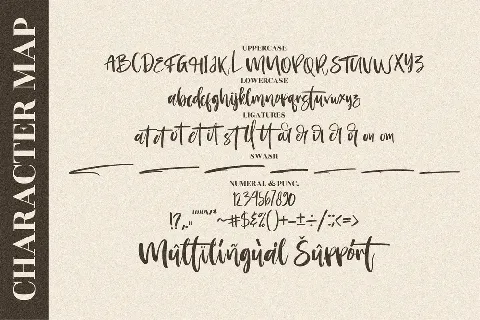 CHARACTER MAP
UPPERCASE
ABCDEFGHIJKLMNOPQRSTUVWXYZ
LOWERCASE
abcdefghijklmnopqrstuvwxyz
LIGATURES
at et ot ct it st ll tt ai oi vi ci oi on om
SWASH
NUMERAL & PUNC.
1234567890
~#$&%()+-±÷/:;<=>
Mûltïlíñgùál Šûppórt